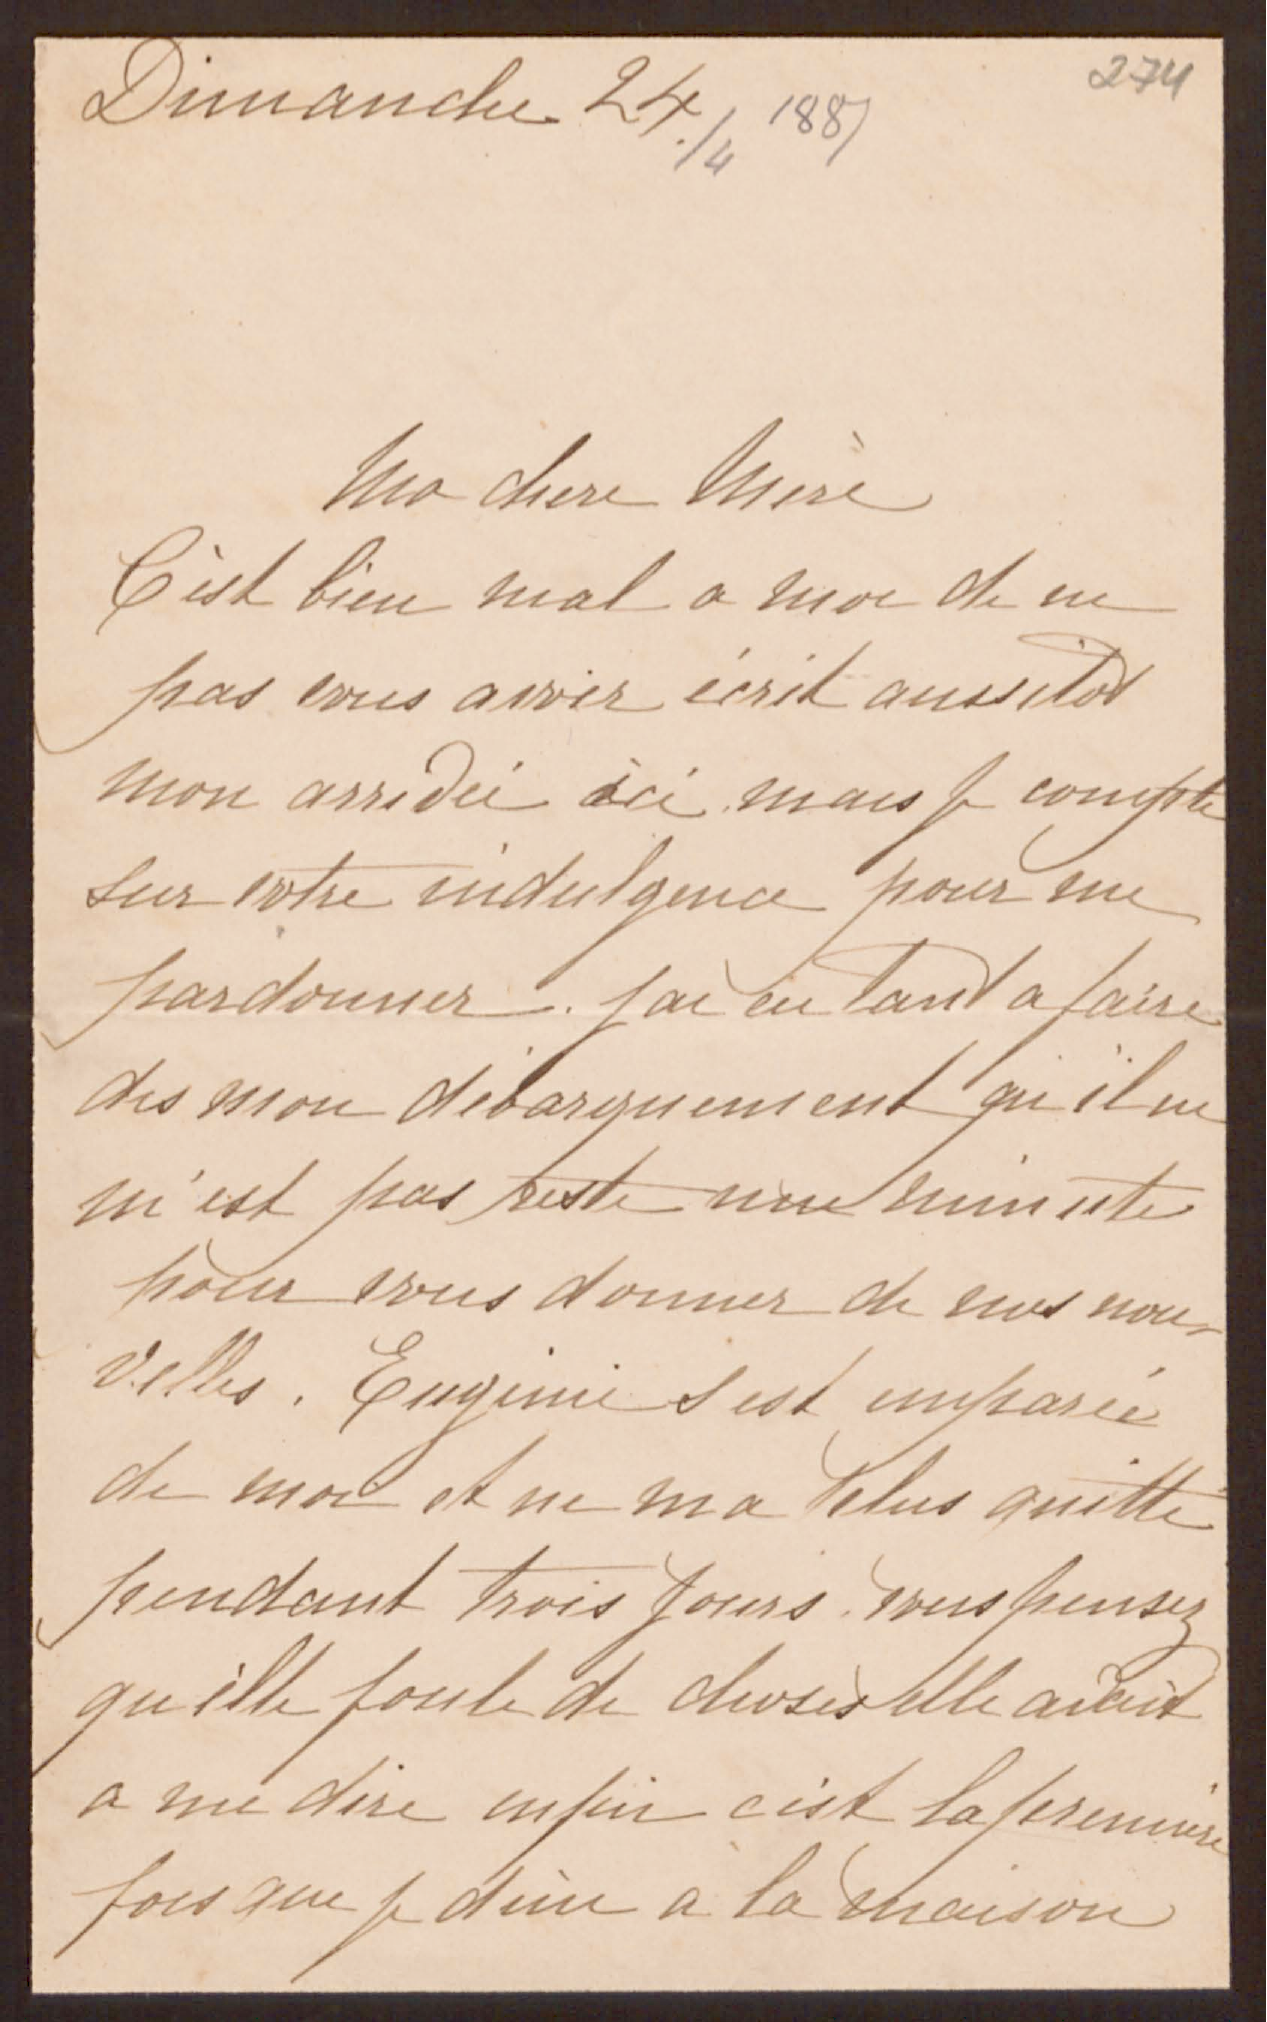 Dimanche 24./4 1887
274
Ma chere Mère
C'est bien mal a moi de ne
pas vous avoir écrit aussitot
mon arrivée ici mais je compte
sur votre indulgence pour me
pardonner. j'ai eu tant a faire
des mon débarquement qu'il ne
m'est pas reste une minute
pour vous donner de nos nou-
velles. Eugenie s est emparée
de moi et ne m a plus quitté
pendant trois jours. vous pensez
qu'elle foule de choses elle avait
a me dire enfin c'est la premiere
fois que je dine a la maison